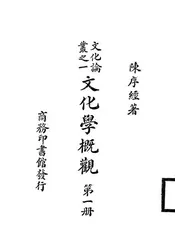 陳序經著
文化論
叢之一
文化學概觀 第一册
商務印書館發行